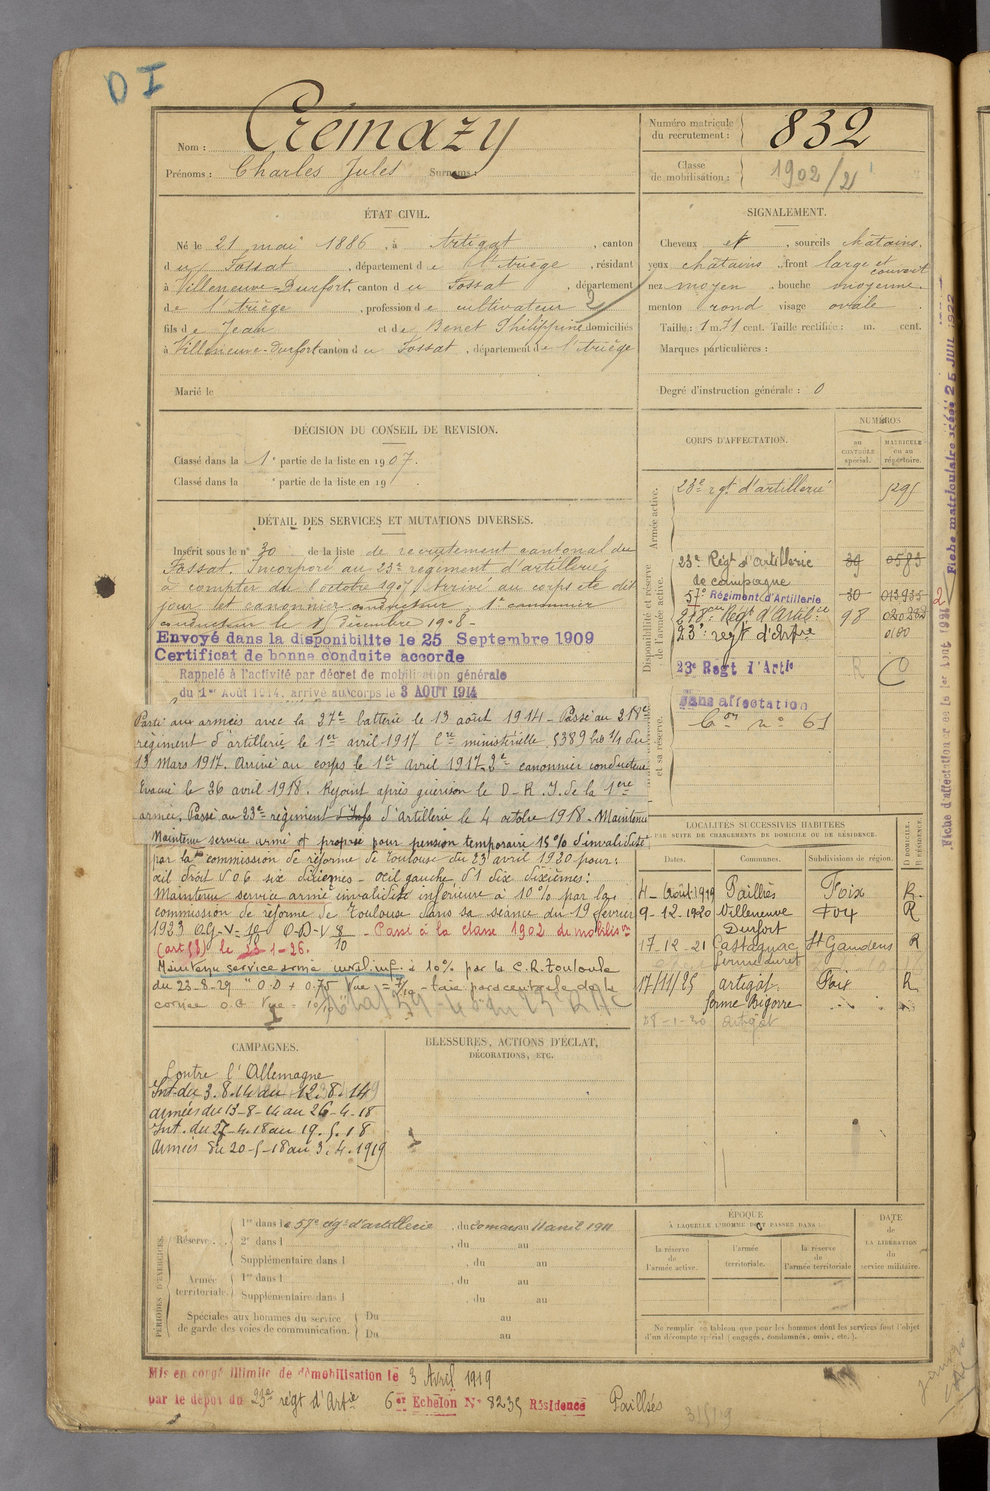 D I
Nom : Crémazy
Prénoms : Charles Jules Surnoms :
Numéro matricule
du recrutement : 832
Classe
de mobilisation : 1902/21
ÉTAT CIVIL.
Né le 21 mai 1886, à Artigat, canton
du Fossat, département de l'Ariège, résidant
à Villeneuve-Durfort, canton du Fossat, département
de l'Ariège, profession de cultivateur 2
fils de Jean et de Benet Philippine domiciliés
à Villeneuve-Durfort canton du Fossat, département de l'Ariège
Marié le
SIGNALEMENT.
Cheveux et, sourcils châtains.
yeux châtains, front large et couvert
nez moyen, bouche moyenne.
menton rond visage ovale.
Taille : 1 m. 71 cent. Taille rectifiée : m. cent.
Marques particulières :
Degré d'instruction générale : 0
DÉCISION DU CONSEIL DE REVISION.
Classé dans la 1e partie de la liste en 1907.
Classé dans la e partie de la liste en 19 .
DÉTAIL DES SERVICES ET MUTATIONS DIVERSES.
Inscrit sous le n° 30 de la liste de recrutement cantonal du
Fossat. Incorporé au 23e régiment d'artillerie
à compter du 8 octobre 1907 Arrivé au corps et dit
jour et canonnier conducteur, 1e canonnier
conducteur le 15 Décembre 1908 -
Envoyé dans la disponibilite le 25 Septembre 1909
Certificat de bonne conduite accorde
Rappelé à l'activité par décret de mobilisation générale
du 1er Août 1914, arrivé au corps le 3 AOUT 1914
Parti aux armées avec la 27e batterie le 13 août 1914 - Passé au 218e
régiment d'artillerie le 1er avril 1917 Con ministérielle 5389 bis 1/1 du
13 Mars 1917. Arrivé au corps le 1er Avril 1917. 2e canonnier conducteur
Evacué le 26 avril 1918. Rejoint après guérison le D.R.I. de la 1ere
armée. Passé au 23e régiment d'Inf d'Artillerie le 4 octobre 1918. Maintenu
Maintenu service armé et proposé pour pension temporaire 15% d'invalidité
par la commission de réforme de Toulouse du 23 avril 1920 pour :
œil droit V 06 six dixièmes - œil gauche V 1 dix dixièmes :
Maintenu service armé invalidité inférieure à 10% par la
commission de réforme de Toulouse dans sa séance du 19 février
1923 O.G-V- 10 O-D-V 8/10 - Passé à la classe 1902 de mobilisон
(art 58) le 23-1-26.
Maintenu service armé inval. inf. à 10% par la C.R. Toulouse
du 23-8-29 " O.D + 0.75 Vue = 7/10 - taie paracentrale de la
cornée O.G Vue = 10/10
CORPS D'AFFECTATION.
NUMÉROS
au CONTRÔLE spécial.
MATRICULE ou au répertoire.
Armée active.
23e rgt d'artillerie 5295
Disponibilité et réserve
de l'armée active.
23e Régt d'Artillerie 39 0583
de campagne
57e Régiment d'Artillerie 30 013935
218e Régt d'Artilie 98
23e régt d'Artie 0100
23e Regt d'Artie R
et sa réserve.
Sans affectation
Con no 61
LOCALITÉS SUCCESSIVES HABITÉES
PAR SUITE DE CHANGEMENTS DE DOMICILE OU DE RÉSIDENCE.
D DOMICILE.
R RÉSIDENCE.
Dates. Communes. Subdivisions de région.
4 - Août 1919 Pailhès Foix R.
9-12-1920 Villeneuve Durfort Foix R
17-12-21 Castagnac St Gaudens R
17/11/25 artigat Foix R
ferme Bigorre
28-1-30 artigat
CAMPAGNES.
Contre l'Allemagne
Int. du 3.8.14 au 12.8.14
armées du 13-8-14 au 26-4-18
Int. du 27-4.18 au 19.5.18
Armées du 20-5-18 au 3.4.1919
BLESSURES, ACTIONS D'ÉCLAT,
DÉCORATIONS, ETC.
PÉRIODES D'EXERCICES.
Réserve...
1re dans le 57e rég d'artillerie, du 20 mars au 11 avril 1911
2e dans l , du au
Supplémentaire dans l , du au
Armée territoriale.
1re dans l , du au
Supplémentaire dans l , du au
Spéciales aux hommes du service
de garde des voies de communication.
Du au
Du au
ÉPOQUE
À LAQUELLE L'HOMME DOIT PASSER DANS :
la réserve de l'armée active.
l'armée territoriale.
la réserve de l'armée territoriale
DATE
de
LA LIBÉRATION
du
service militaire.
Ne remplir ce tableau que pour les hommes dont les services font l'objet
d'un décompte spécial (engagés, condamnés, omis, etc.).
Mis en congé illimité de démobilisation le 3 Avril 1919
par le dépôt du 23e régt d'Artie 6er Echelon No 8235 Résidence Pailhès
Fiche matriculaire créée 25 JUIL 1922
2